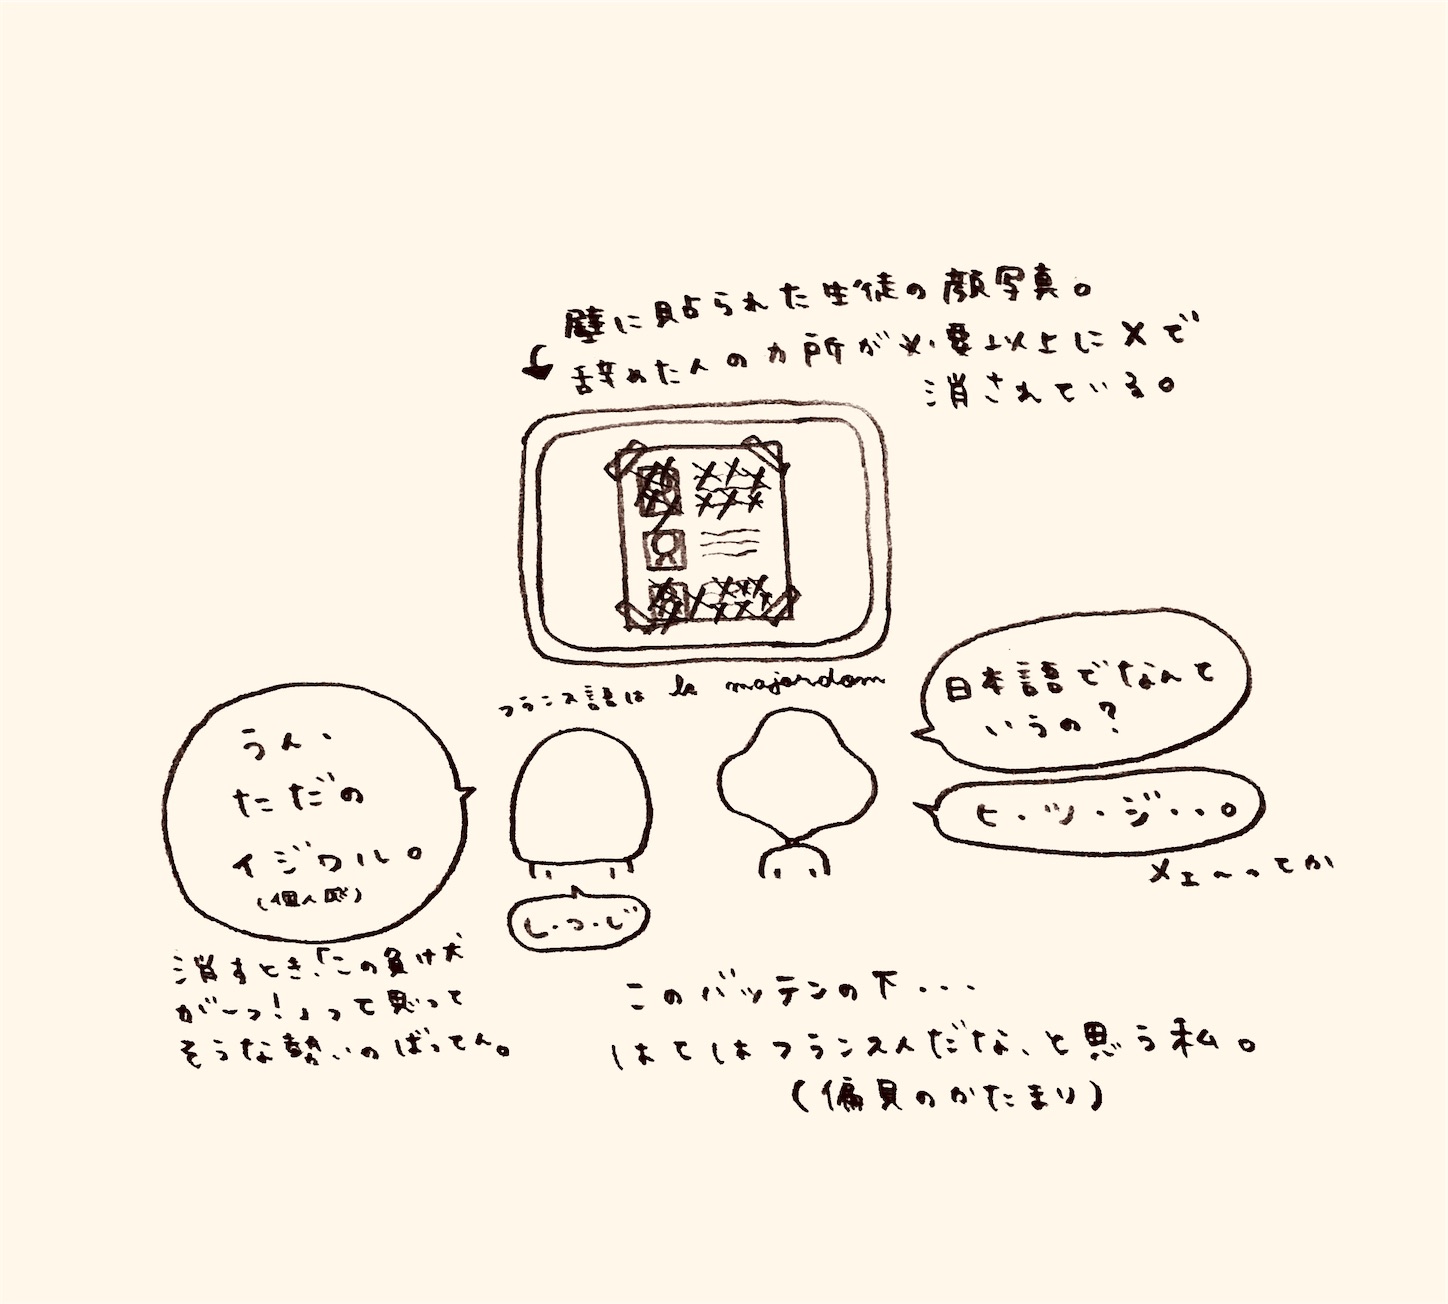 壁に貼られた生徒の顔写真。
辞めた人のカ所が必要以上に×で
消されている。
フランス語は le majordom
日本語でなんて
いうの？
ヒ・ツ・ジ・・。
メェ〜ってか
うん、
ただの
イジワル。
(個人感)
し・つ・じ
消すとき、「この負け犬
がーっ!」って思って
そうな勢いのばってん。
このバッテンの下...
はてはフランス人だな、と思う私。
(偏見のかたまり)